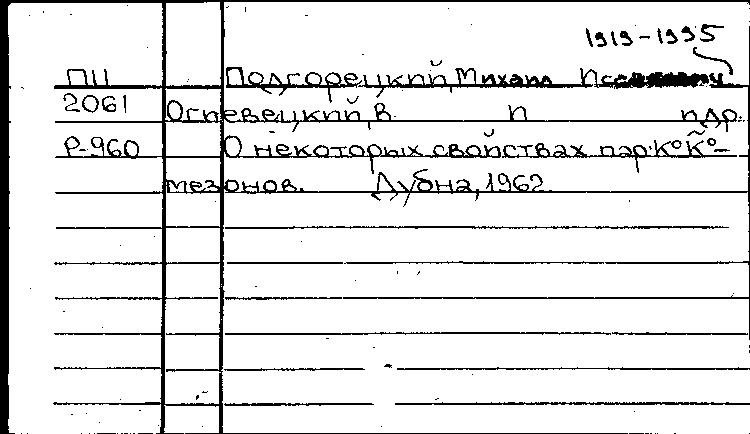 1919-1995
ПИ Подгорецкий, Михаил Исаакович
2061 Огиевецкий, В. И. и др.
Р-960 О некоторых свойствах пар K°K̃°-
мезонов. Дубна, 1962.